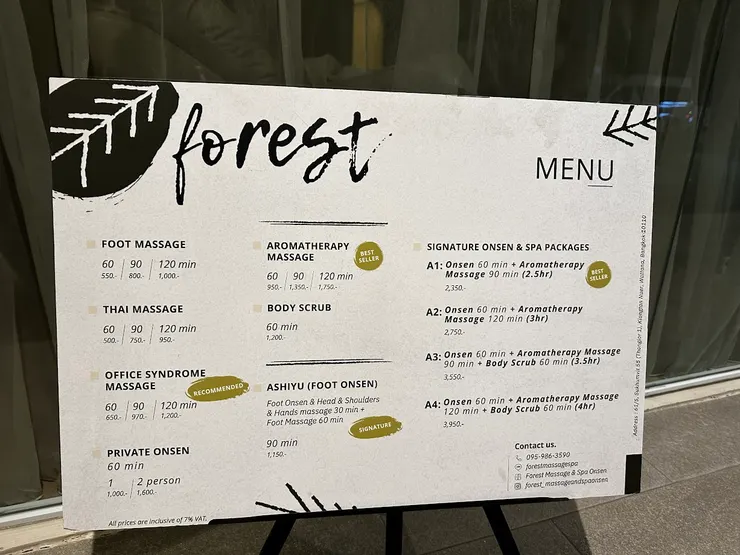 forest
MENU
FOOT MASSAGE
60 90 120 min
550.- 800.- 1,000.-
THAI MASSAGE
60 90 120 min
500.- 750.- 950.-
OFFICE SYNDROME
MASSAGE
RECOMMENDED
60 90 120 min
650.- 970.- 1,200.-
PRIVATE ONSEN
60 min
1 2 person
1,000.- 1,600.-
All prices are inclusive of 7% VAT.
AROMATHERAPY
MASSAGE
BEST
SELLER
60 90 120 min
950.- 1,350.- 1,750.-
BODY SCRUB
60 min
1,200.-
ASHIYU (FOOT ONSEN)
Foot Onsen & Head & Shoulders
& Hands massage 30 min +
Foot Massage 60 min
SIGNATURE
90 min
1,150.-
SIGNATURE ONSEN & SPA PACKAGES
A1: Onsen 60 min + Aromatherapy
Massage 90 min (2.5hr)
BEST
SELLER
2,350.-
A2: Onsen 60 min + Aromatherapy
Massage 120 min (3hr)
2,750.-
A3: Onsen 60 min + Aromatherapy Massage
90 min + Body Scrub 60 min (3.5hr)
3,550.-
A4: Onsen 60 min + Aromatherapy Massage
120 min + Body Scrub 60 min (4hr)
3,950.-
Contact us.
095-986-3590
forestmassagespa
Forest Massage & Spa Onsen
forest_massageandspaonsen
Address : 61/5, Sukhumvit 55 (Thonglor 1), Klongton Nuer, Wattana, Bangkok 10110